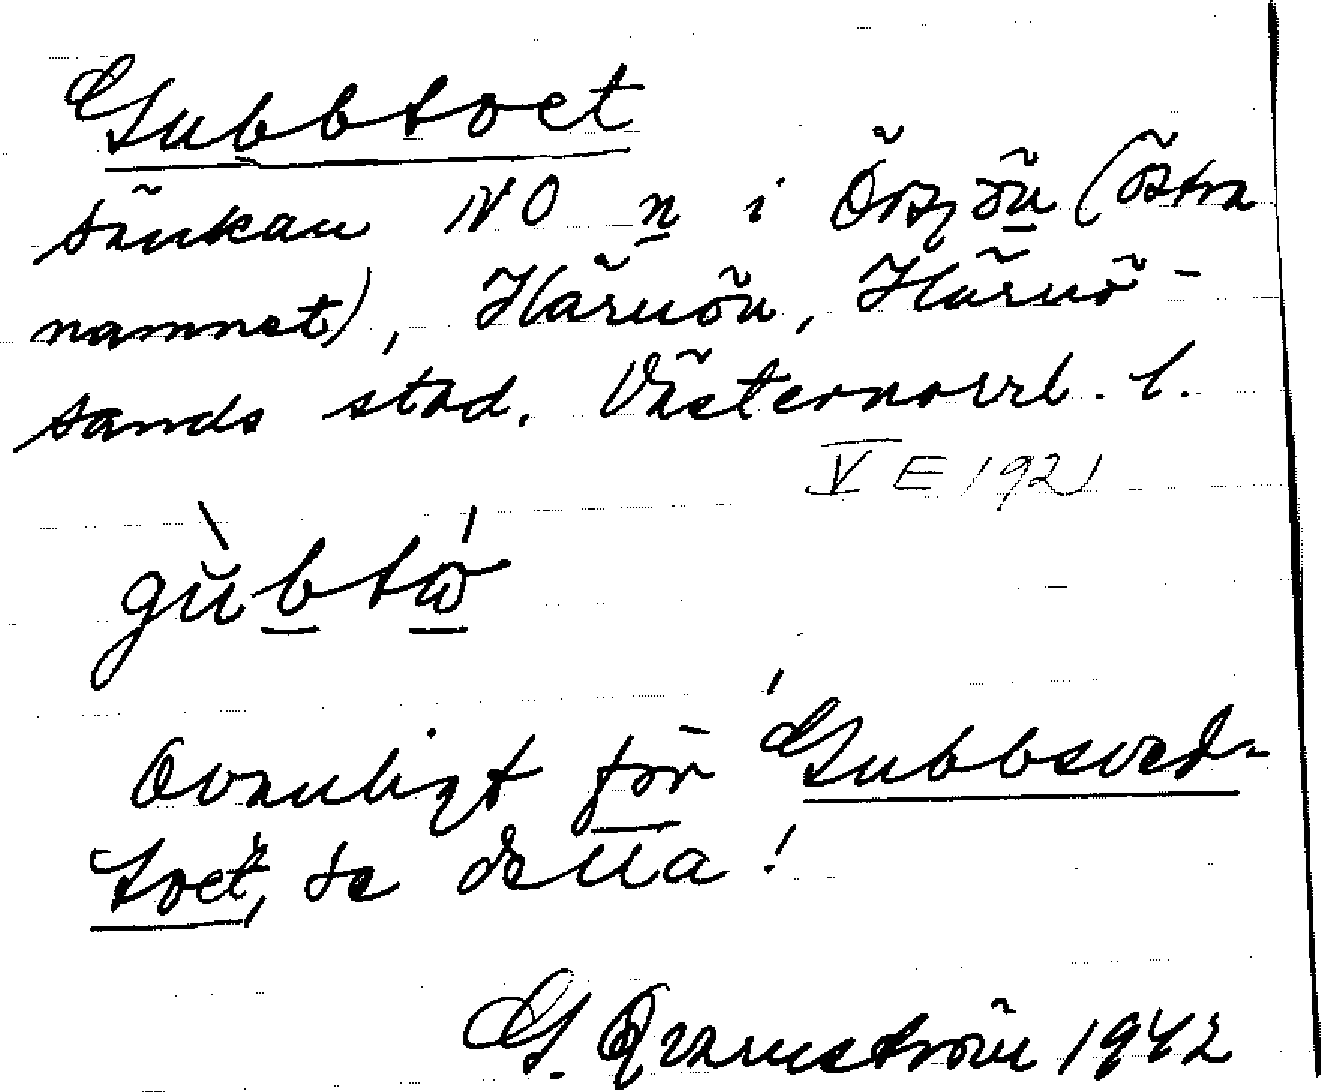 Gubbtoet
sänkan NO n i Örsjön (östra
namnet), Härnön, Härnö-
sands stad. Västernorrl. l.
V E 1921
gùbtó
Ovanligt för Gubbsved-
toet, se detta!
G. Qvarnström 1942